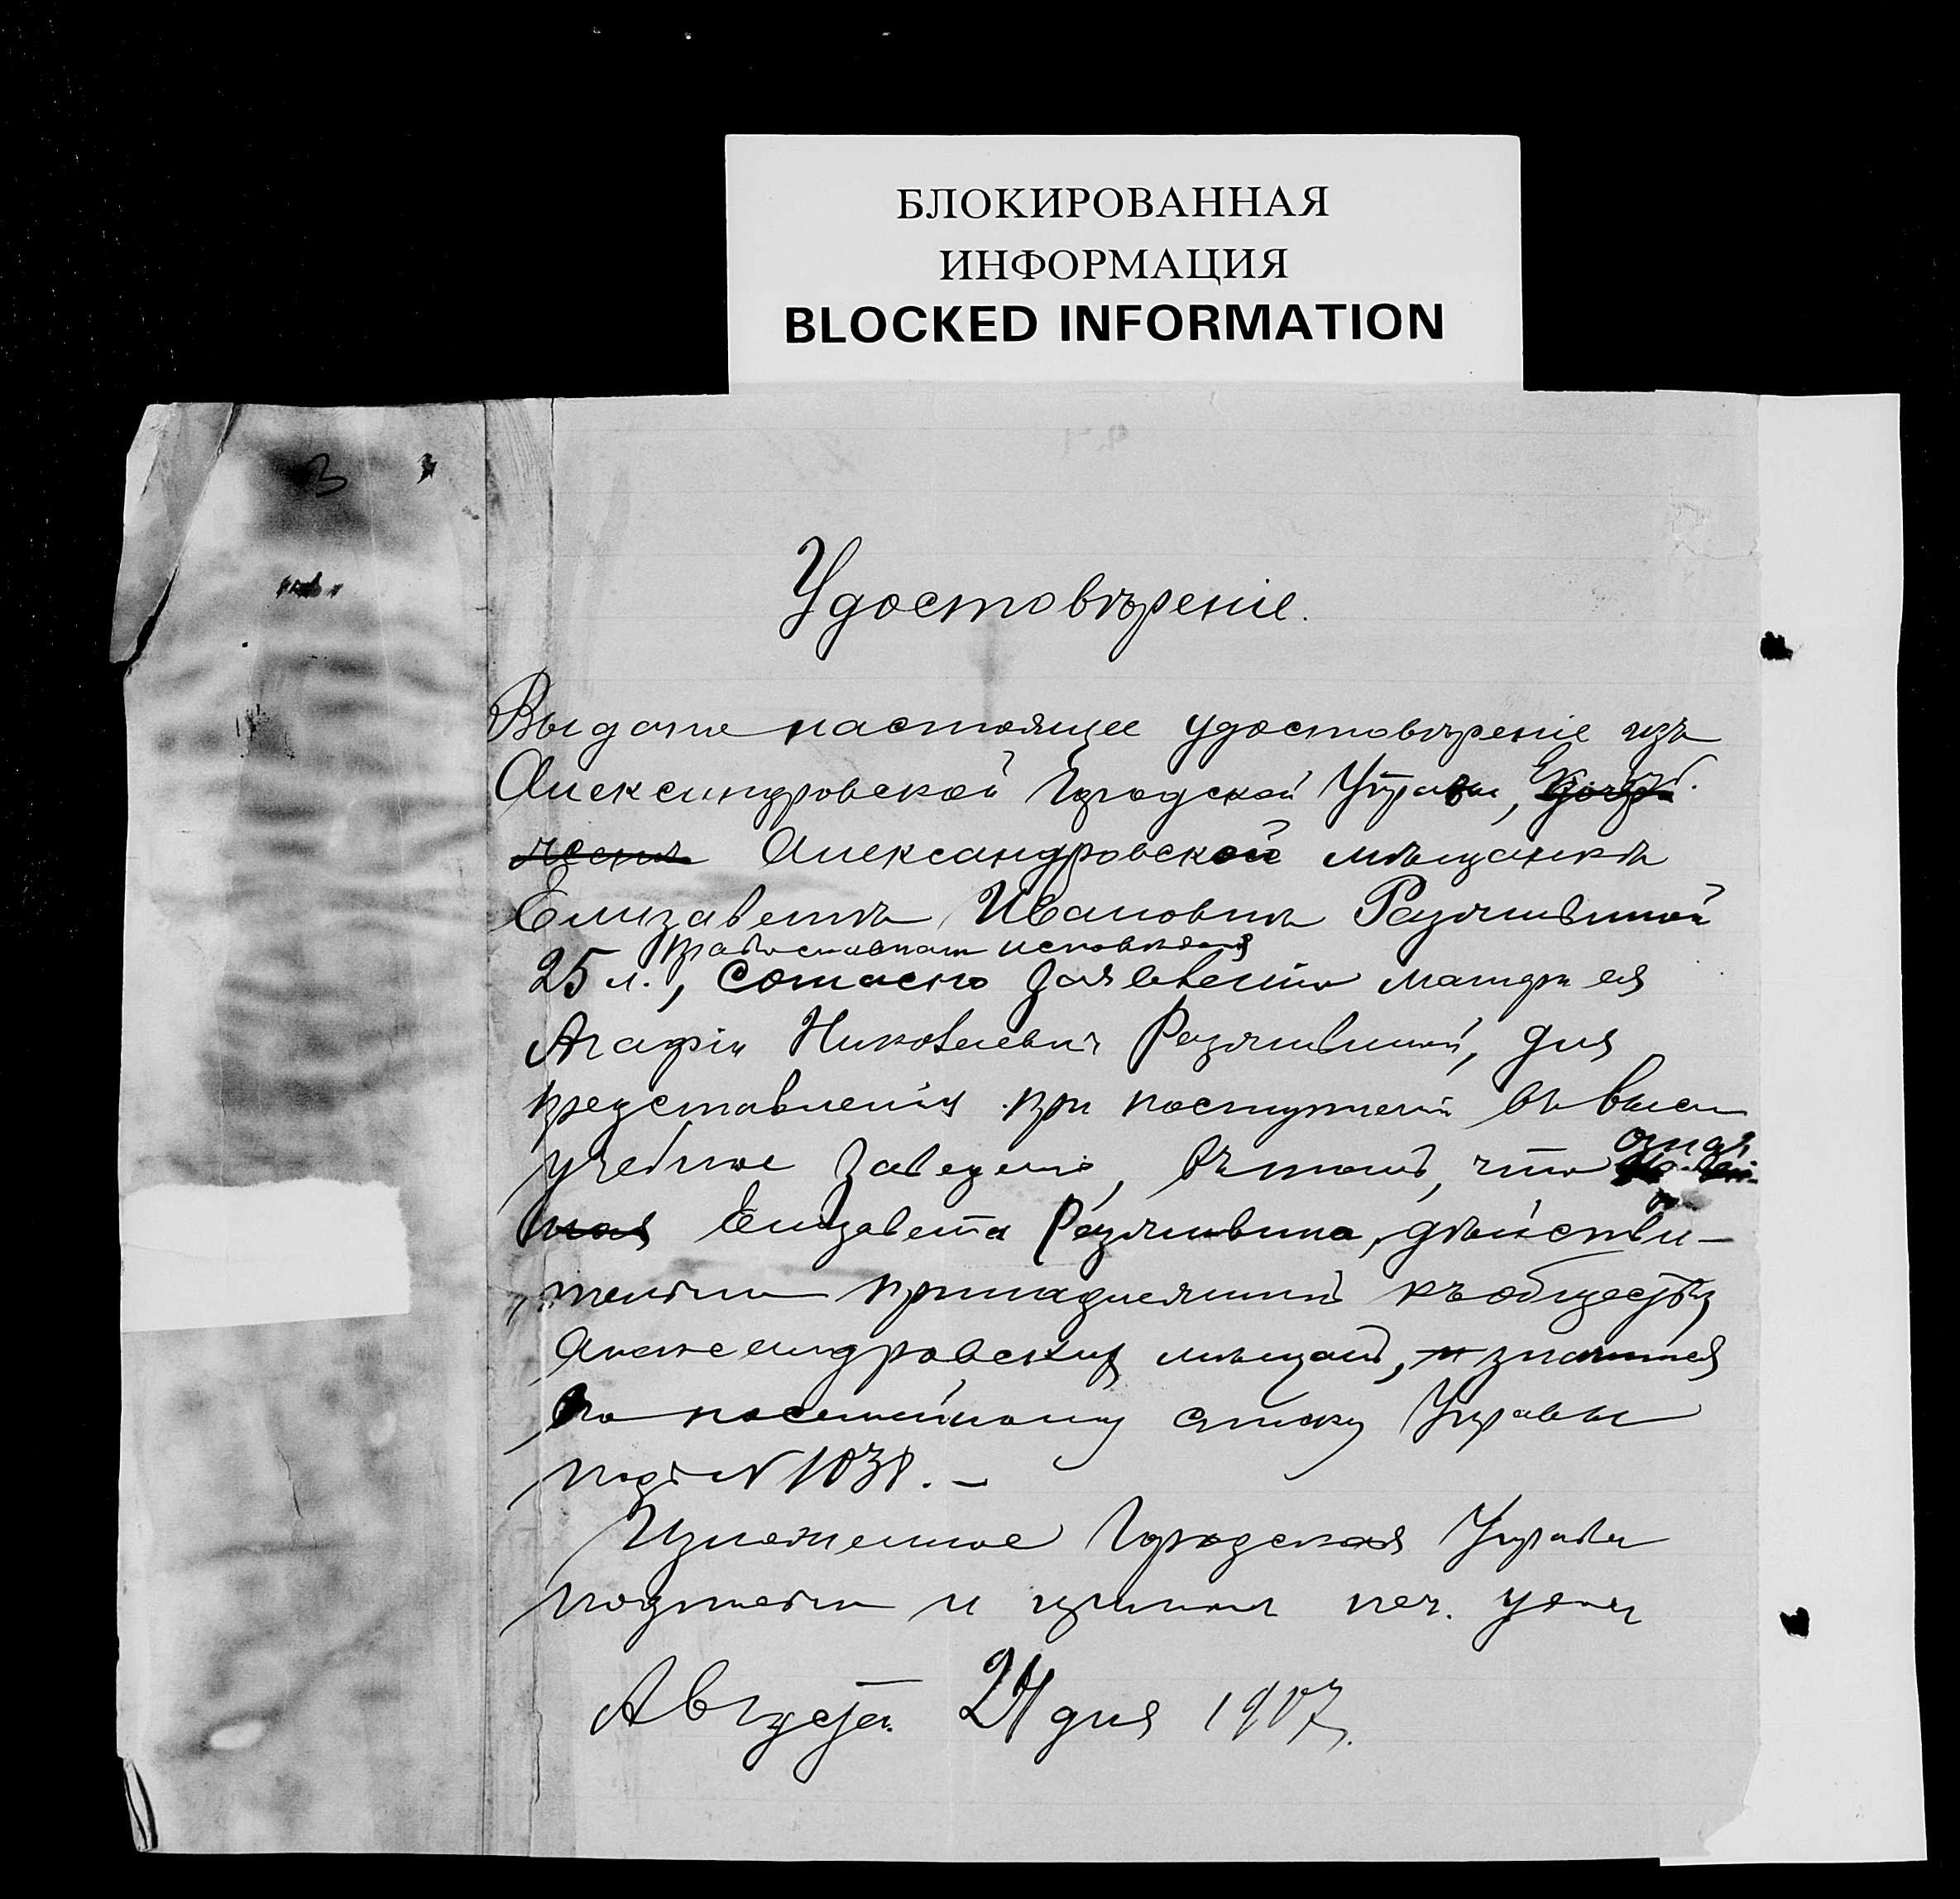 БЛОКИРОВАННАЯ
ИНФОРМАЦИЯ
BLOCKED INFORMATION
3
Удостовѣреніе.
Выдано настоящее удостовѣреніе изъ
Александровской Городской Управы,
Александровской мѣщанкѣ
Елизаветѣ Ивановнѣ
православнаго исповѣданія
25 л., согласно заявленію матери ея
Агафіи Николаевны для
представленія при поступленіи въ высш
учебное заведеніе, въ томъ, что она
Елизавета дѣйстви-
тельно принадлежитъ къ обществу
Александровскихъ мѣщанъ, и значится
по посемейному списку Управы
подъ №
Изложенное Городская Управа
подписью и печ. удост
Августа 24 дня 1907.